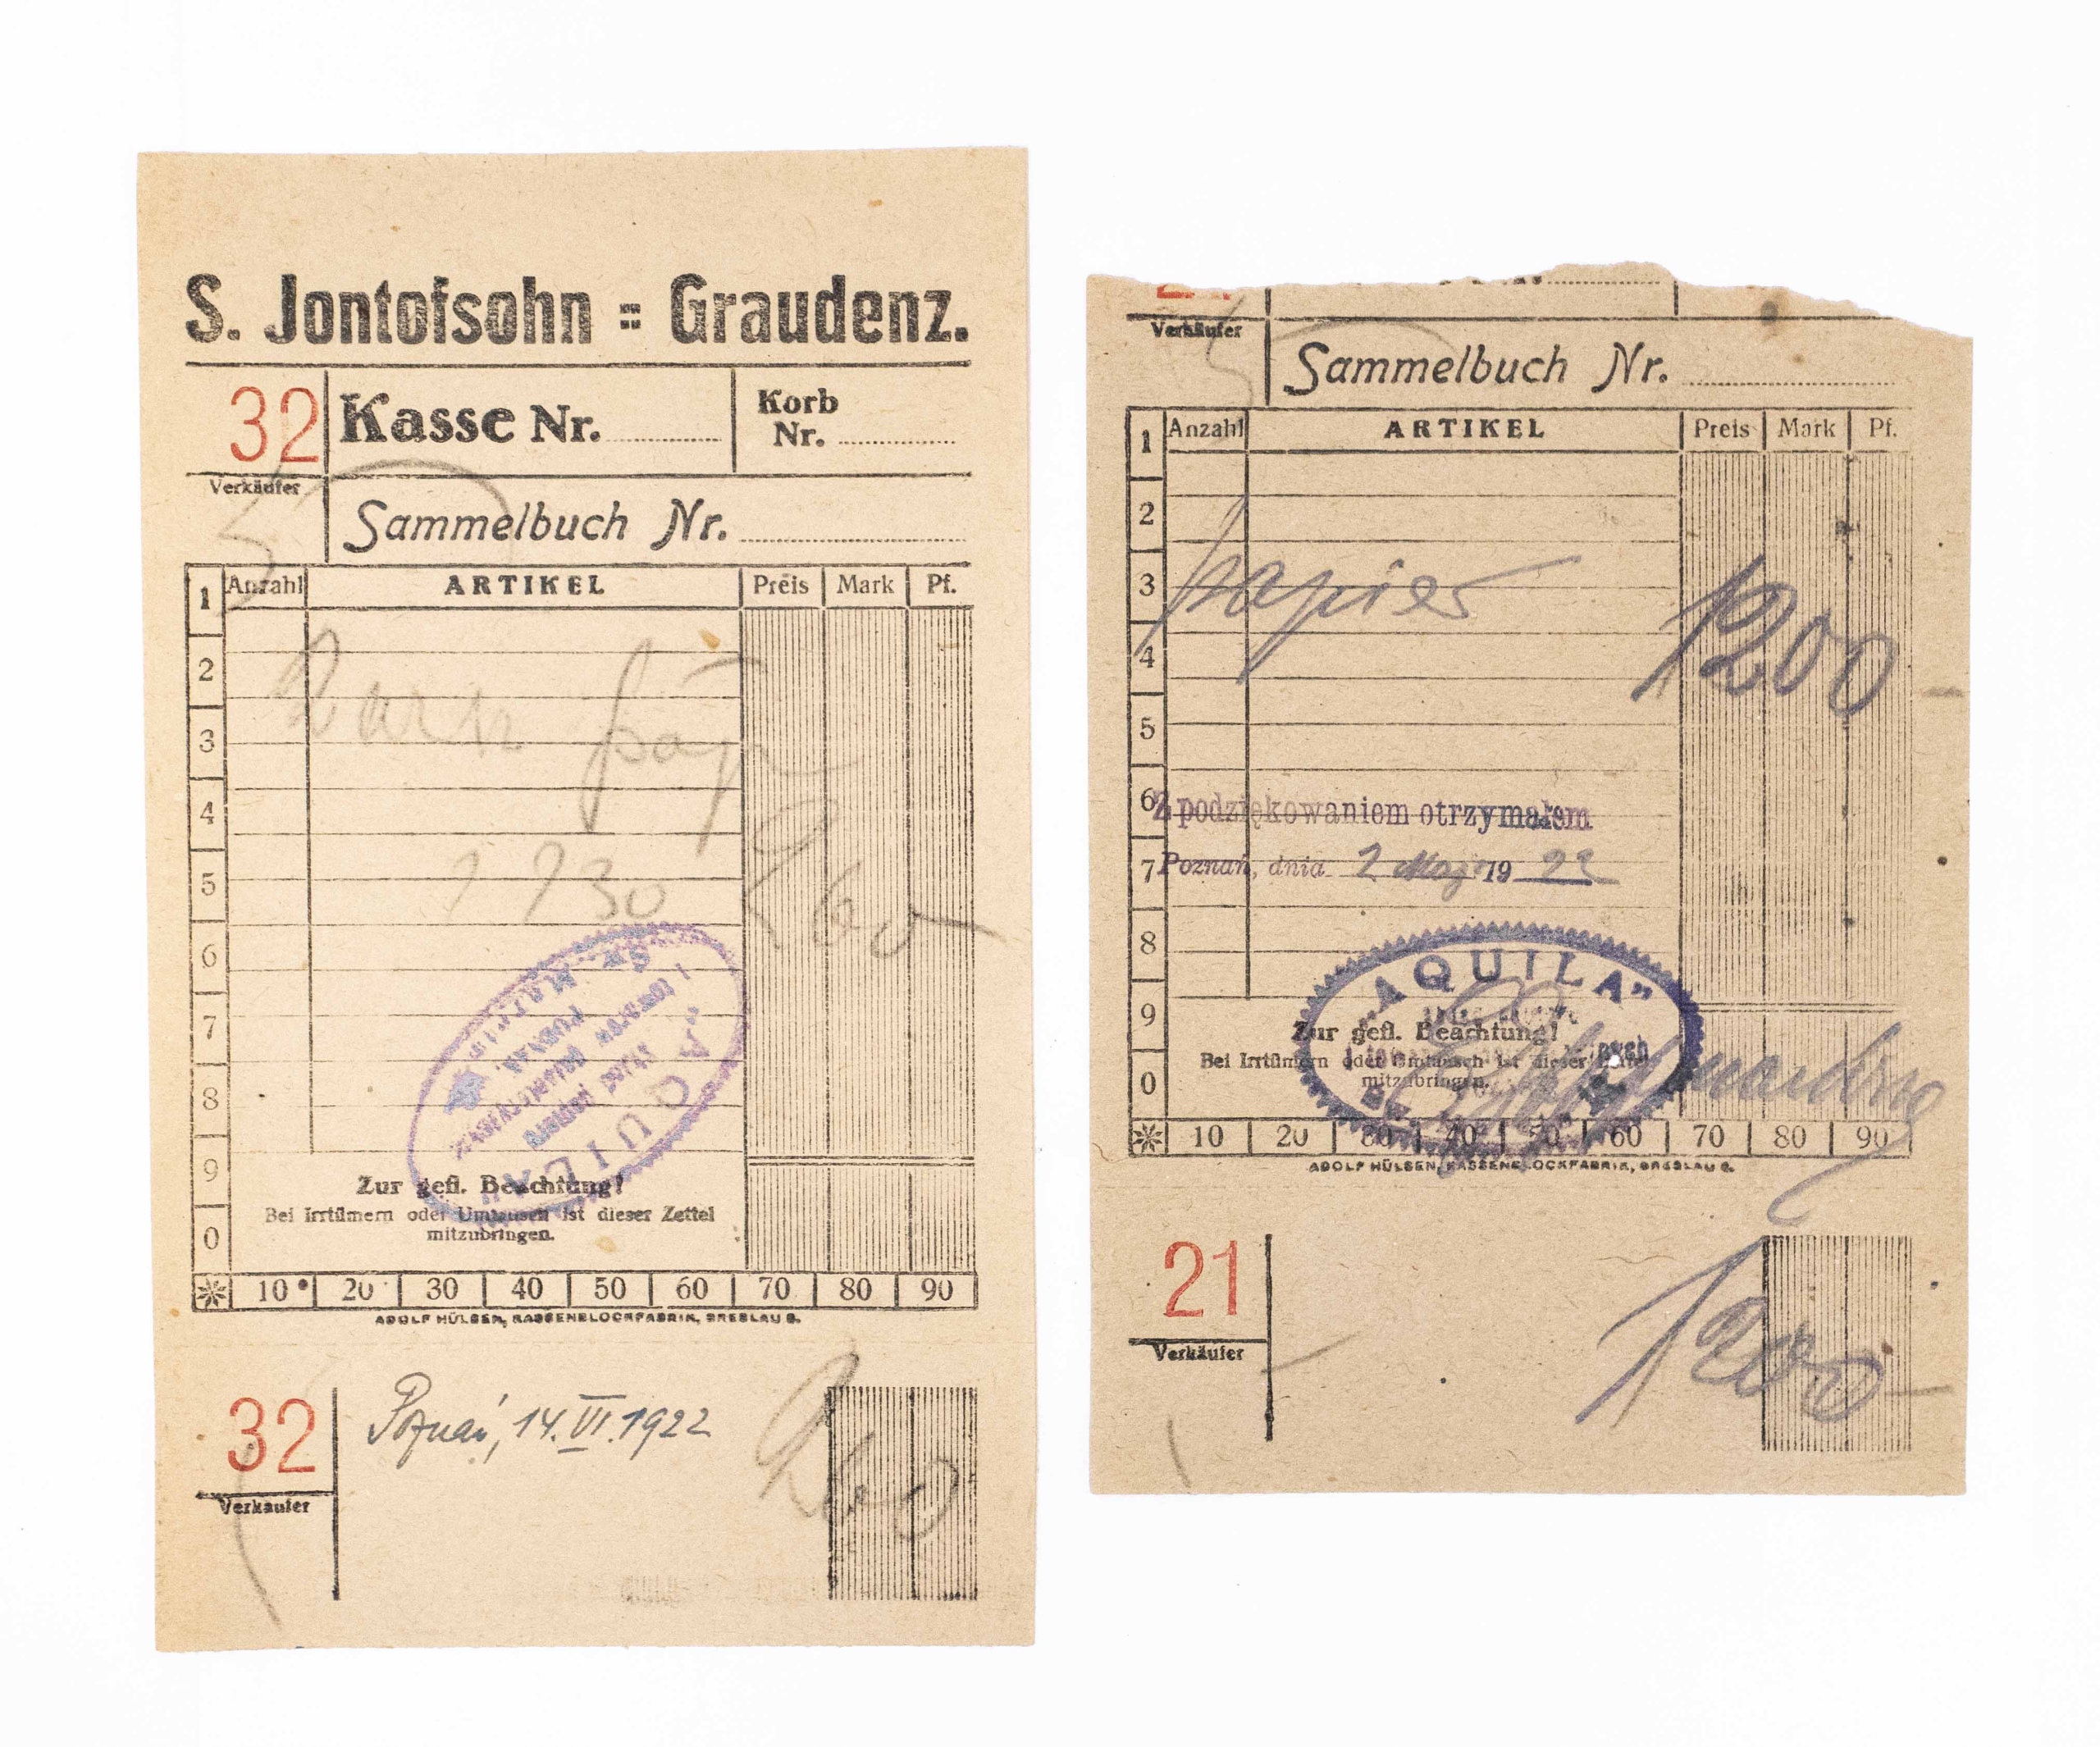 S. Jontofsohn = Graudenz.
32
Kasse Nr.
Korb
Nr.
Verkäufer
Sammelbuch Nr.
1 Anzahl ARTIKEL Preis Mark Pf.
2
3
4
5
260
6
7
8
9
"AQUILA"
Zur gefl. Beachtung!
Bei Irrtümern oder Umtausch ist dieser Zettel
mitzubringen.
0
10 20 30 40 50 60 70 80 90
ADOLF HÜLSEN, KASSENBLOCKFABRIK, BRESLAU 8.
32
Poznań, 14.VI.1922
260
Verkäufer
Verkäufer
Sammelbuch Nr.
1 Anzahl ARTIKEL Preis Mark Pf.
2
3 papier 1200
4
5
6 Z podziękowaniem otrzymałem
7 Poznań, dnia 2 Maj 1922
8
"AQUILA"
9
Zur gefl. Beachtung!
Bei Irrtümern oder Umtausch ist dieser
mitzubringen.
0
10 20 30 40 50 60 70 80 90
ADOLF HÜLSEN, KASSENBLOCKFABRIK, BRESLAU 8.
21
1200
Verkäufer